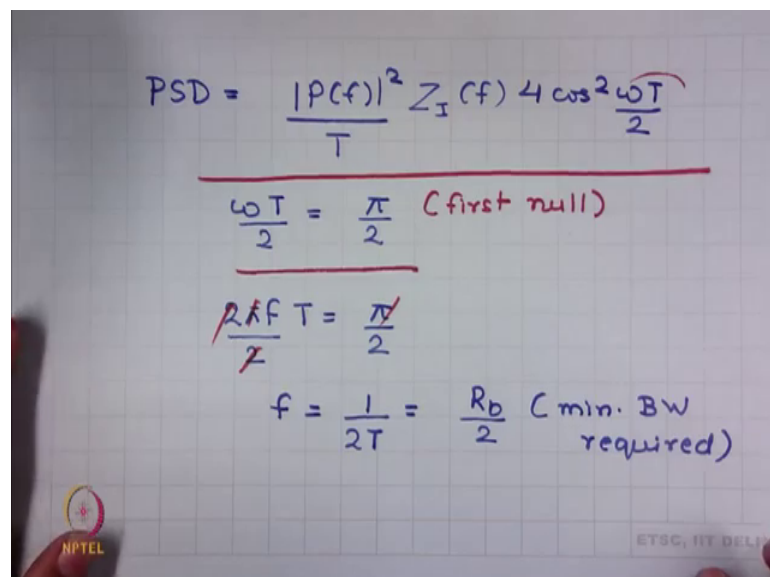 PSD = |P(f)|² / T Z_I (f) 4 cos² ωT/2
ωT/2 = π/2 (first null)
2πf/2 T = π/2
f = 1/2T = Rb/2 (min. BW
required)
NPTEL
ETSC, IIT DELHI